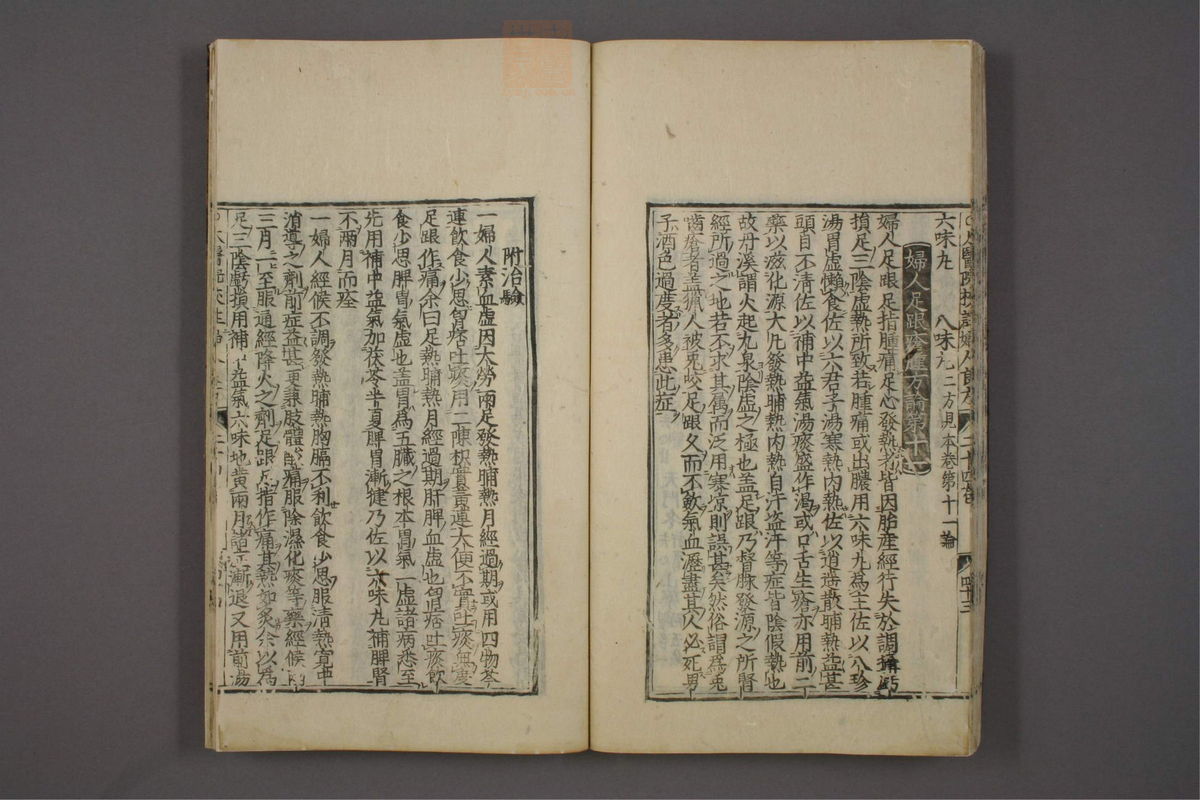 六味丸　八味丸二方見本卷第十一論
婦人足跟瘡腫方論第十一
婦人足跟足指腫痛足心發熱者皆因胎産經行失於調攝虧
損足三陰虛熱所致若腫痛或出膿用六味丸為主佐以八珍
湯胃虛懶食佐以六君子湯寒熱內熱佐以逍遙散晡熱益甚
頭目不清佐以補中益氣湯痰盛作渴或口舌生瘡亦用前二
藥以滋化源大凡發熱晡熱內熱自汗盗汗等症皆陰假熱也
故丹溪謂火起九泉陰虛之極也盖足跟乃督脉發源之所腎
經所過之地若不求其屬而泛用寒凉則誤甚矣然俗謂為兎
嚙瘡者盖獵人被兎咬足跟久而不斂氣血瀝盡其人必死男
子酒色過度者多患此症
附治驗
一婦人素血虛因大勞兩足發熱晡熱月經過期或用四物芩
連飲食少思胷痞吐痰用二陳枳實黃連大便不實吐痰無度
足跟作痛余曰足熱晡熱月經過期肝脾血虛也胷痞吐痰飲
食少思脾胃氣虛也盖胃為五臟之根本胃氣一虛諸病悉至
先用補中益氣加茯苓半夏脾胃漸健乃佐以六味丸補脾腎
不兩月而痊
一婦人經候不調發熱晡熱胸膈不利飲食少思服清熱寬中
消導之劑前症益甚更兼肢體痛服除濕化痰等藥經候
三月一至服通經降火之劑足跟足指作痛其熱如炙余以為
足三陰虧損用補中益氣六味地黃兩月諸症漸退又用前湯